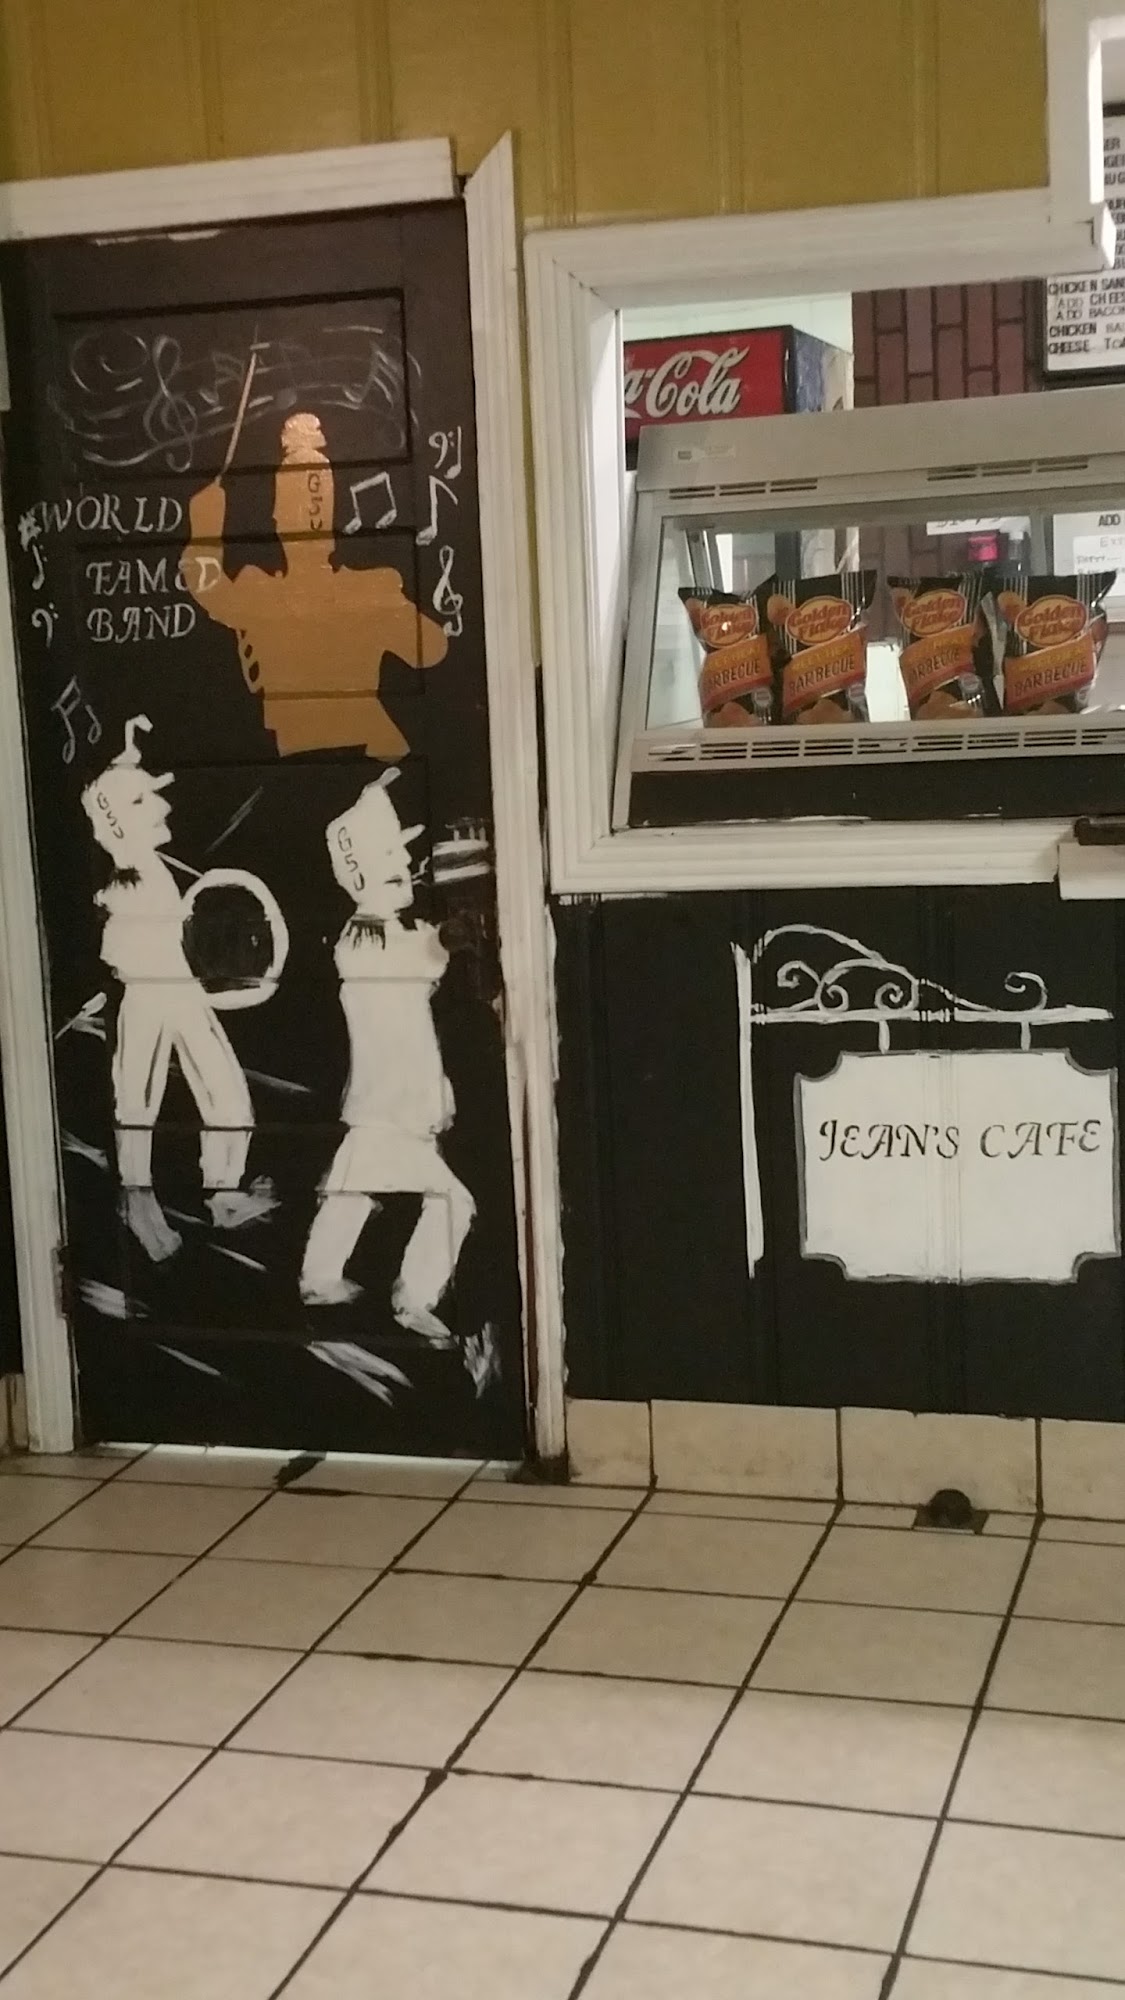 #WORLD
FAMED
BAND
GSU
GSU
GSU
a-Cola
CHICKEN SAN
ADD CHEE
ADD BACON
CHICKEN BA
CHEESE TOA
ADD
Golden
Flake
BARBECUE
Golden
Flake
BARBECUE
Golden
Flake
BARBECUE
Golden
Flake
BARBECUE
JEAN'S CAFE